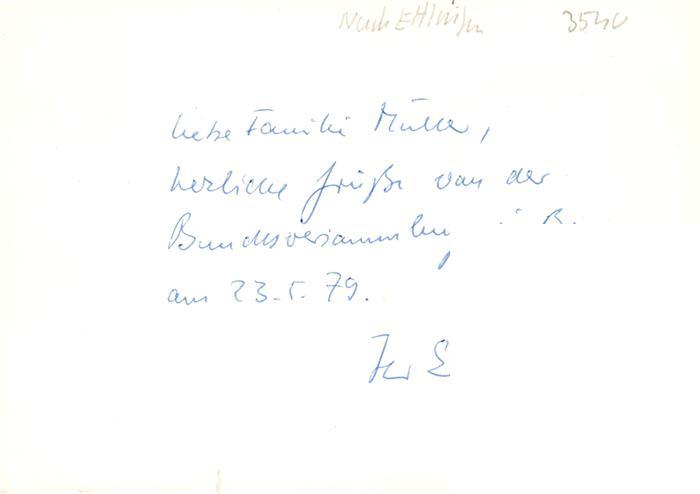 Nach Ettlingen 3540
liebe Familie Müller,
herzliche Grüße von der
Bundesversammlung
am 23.5.79.
Ihr E